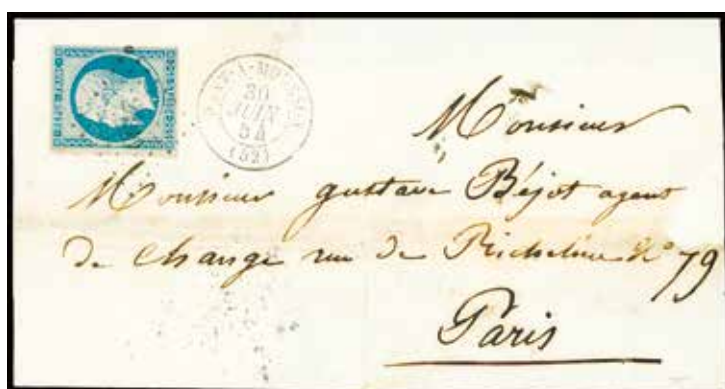 PONT-A-MOUSSON
30
JUIN
54
(52)
Monsieur
Monsieur gustave Béjot agent
de change rue de Richelieu N° 79
Paris